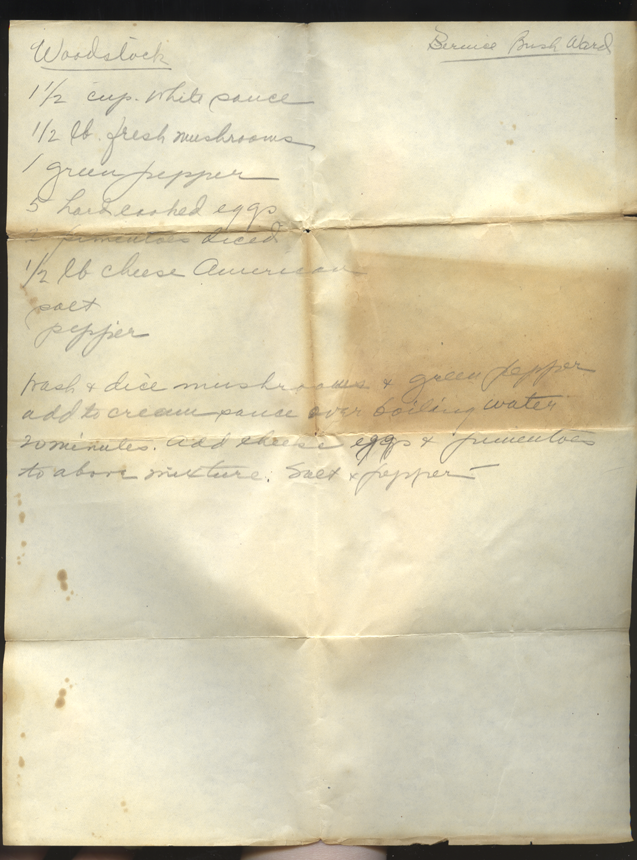 Woodstock
Bernice Bush Ward
1 1/2 cup. white sauce
1/2 lb. fresh mushrooms
1 green pepper
5 hard cooked eggs
pimentoes diced
1/2 lb cheese American
salt
pepper
Wash & dice mushrooms & green pepper
add to cream sauce over boiling water
20 minutes. add cheese eggs & pimentoes
to above mixture. Salt & pepper